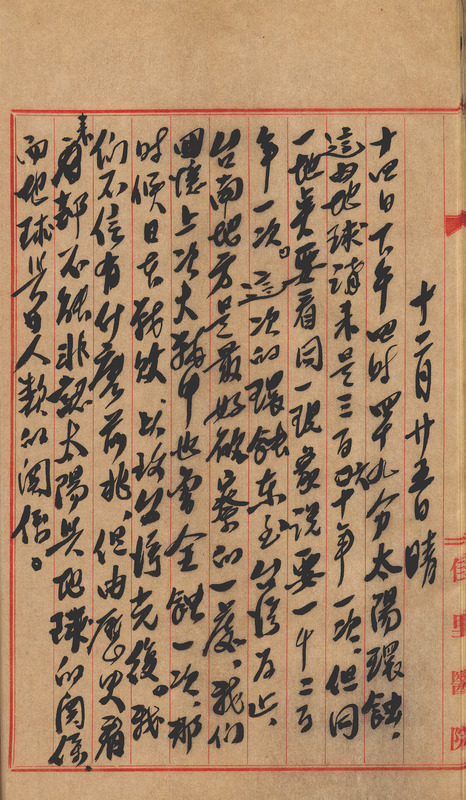 佳里醫院
十二月廿五日 晴
十四日下午四時四十九分太陽環蝕,
這由地球講來是三百十年一次,但同
一地點要看同一現象說要一千二百
年一次。這次的環蝕東至台灣為止,
台南地方是最好観察的一處,我們
回憶上次大戰中也曾全蝕一次,那
時候日本戰敗 以致台灣光復。我
們不信有什麼前兆,但由歷史看
來都不能非認太陽與地球的關係,
而地球與人類的關係。